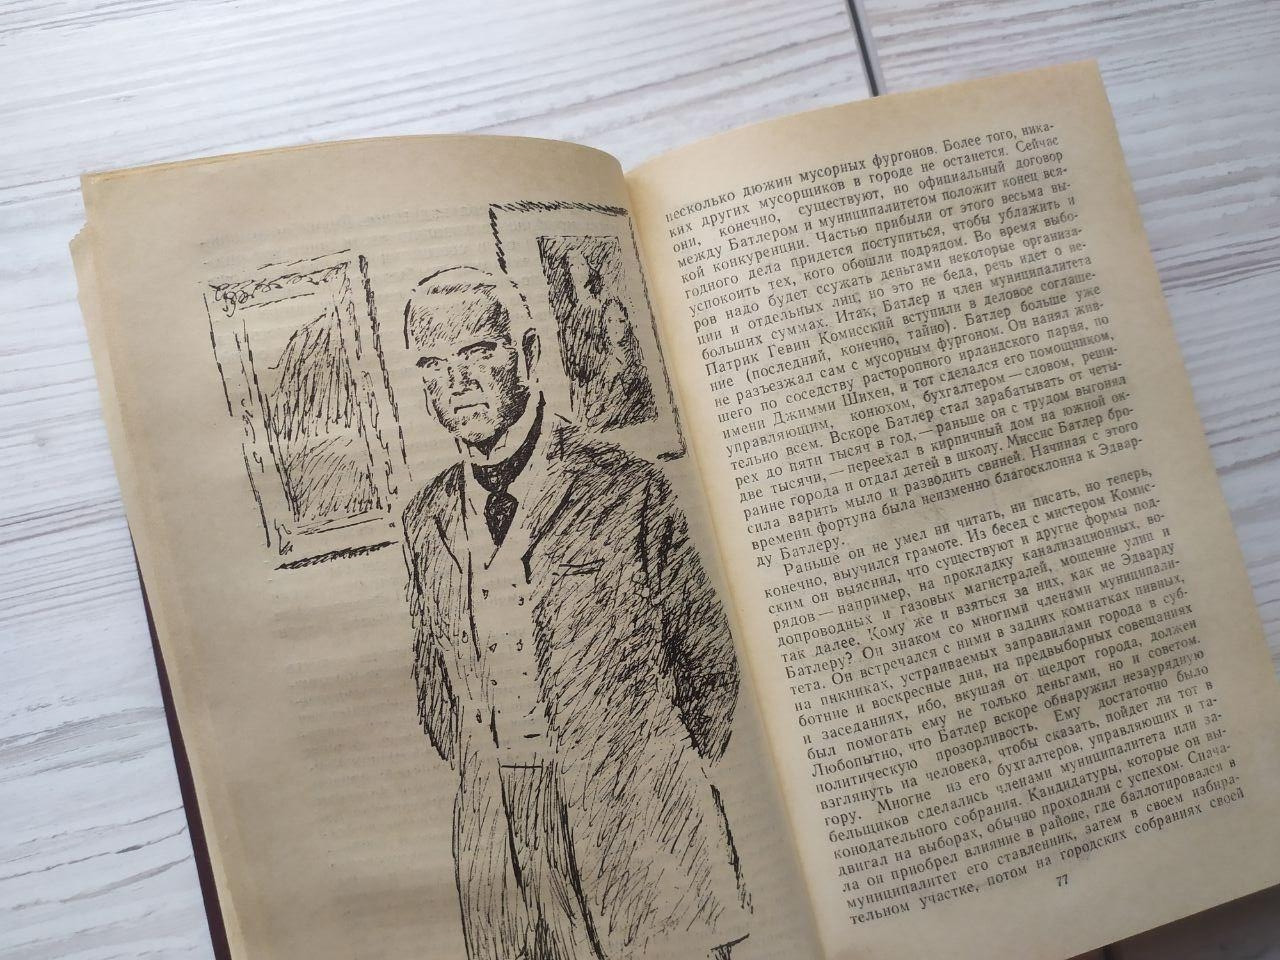 несколько дюжин мусорных фургонов. Более того, ника-
ких других мусорщиков в городе не останется. Сейчас
они, конечно, существуют, но официальный договор
между Батлером и муниципалитетом положит конец вся-
кой конкуренции. Частью прибыли от этого весьма вы-
годного дела придется поступиться, чтобы ублажить и
успокоить тех, кого обошли подрядом. Во время выбо-
ров надо будет ссужать деньгами некоторые организа-
ции и отдельных лиц, но это не беда, речь идет о не-
больших суммах. Итак, Батлер и член муниципалитета
Патрик Гевин Комисский вступили в деловое соглаше-
ние (последний, конечно, тайно). Батлер больше уже
не разъезжал сам с мусорным фургоном. Он нанял жив-
шего по соседству расторопного ирландского парня, по
имени Джимми Шихен, и тот сделался его помощником,
управляющим, конюхом, бухгалтером — словом, реши-
тельно всем. Вскоре Батлер стал зарабатывать от четы-
рех до пяти тысяч в год, — раньше он с трудом выгонял
две тысячи, — переехал в кирпичный дом на южной ок-
раине города и отдал детей в школу. Миссис Батлер бро-
сила варить мыло и разводить свиней. Начиная с этого
времени фортуна была неизменно благосклонна к Эдвар-
ду Батлеру.
Раньше он не умел ни читать, ни писать, но теперь,
конечно, выучился грамоте. Из бесед с мистером Комис-
ским он выяснил, что существуют и другие формы под-
рядов — например, на прокладку канализационных, во-
допроводных и газовых магистралей, мощение улиц и
так далее. Кому же и взяться за них, как не Эдварду
Батлеру? Он знаком со многими членами муниципали-
тета. Он встречался с ними в задних комнатках пивных,
на пикниках, устраиваемых заправилами города в суб-
ботние и воскресные дни, на предвыборных совещаниях
и заседаниях, ибо, вкушая от щедрот города, должен
был помогать ему не только деньгами, но и советом.
Любопытно, что Батлер вскоре обнаружил незаурядную
политическую прозорливость. Ему достаточно было
взглянуть на человека, чтобы сказать, пойдет ли тот в
гору. Многие из его бухгалтеров, управляющих и та-
бельщиков сделались членами муниципалитета или за-
конодательного собрания. Кандидатуры, которые он вы-
двигал на выборах, обычно проходили с успехом. Снача-
ла он приобрел влияние в районе, где баллотировался в
муниципалитет его ставленник, затем в своем избира-
тельном участке, потом на городских собраниях своей
77